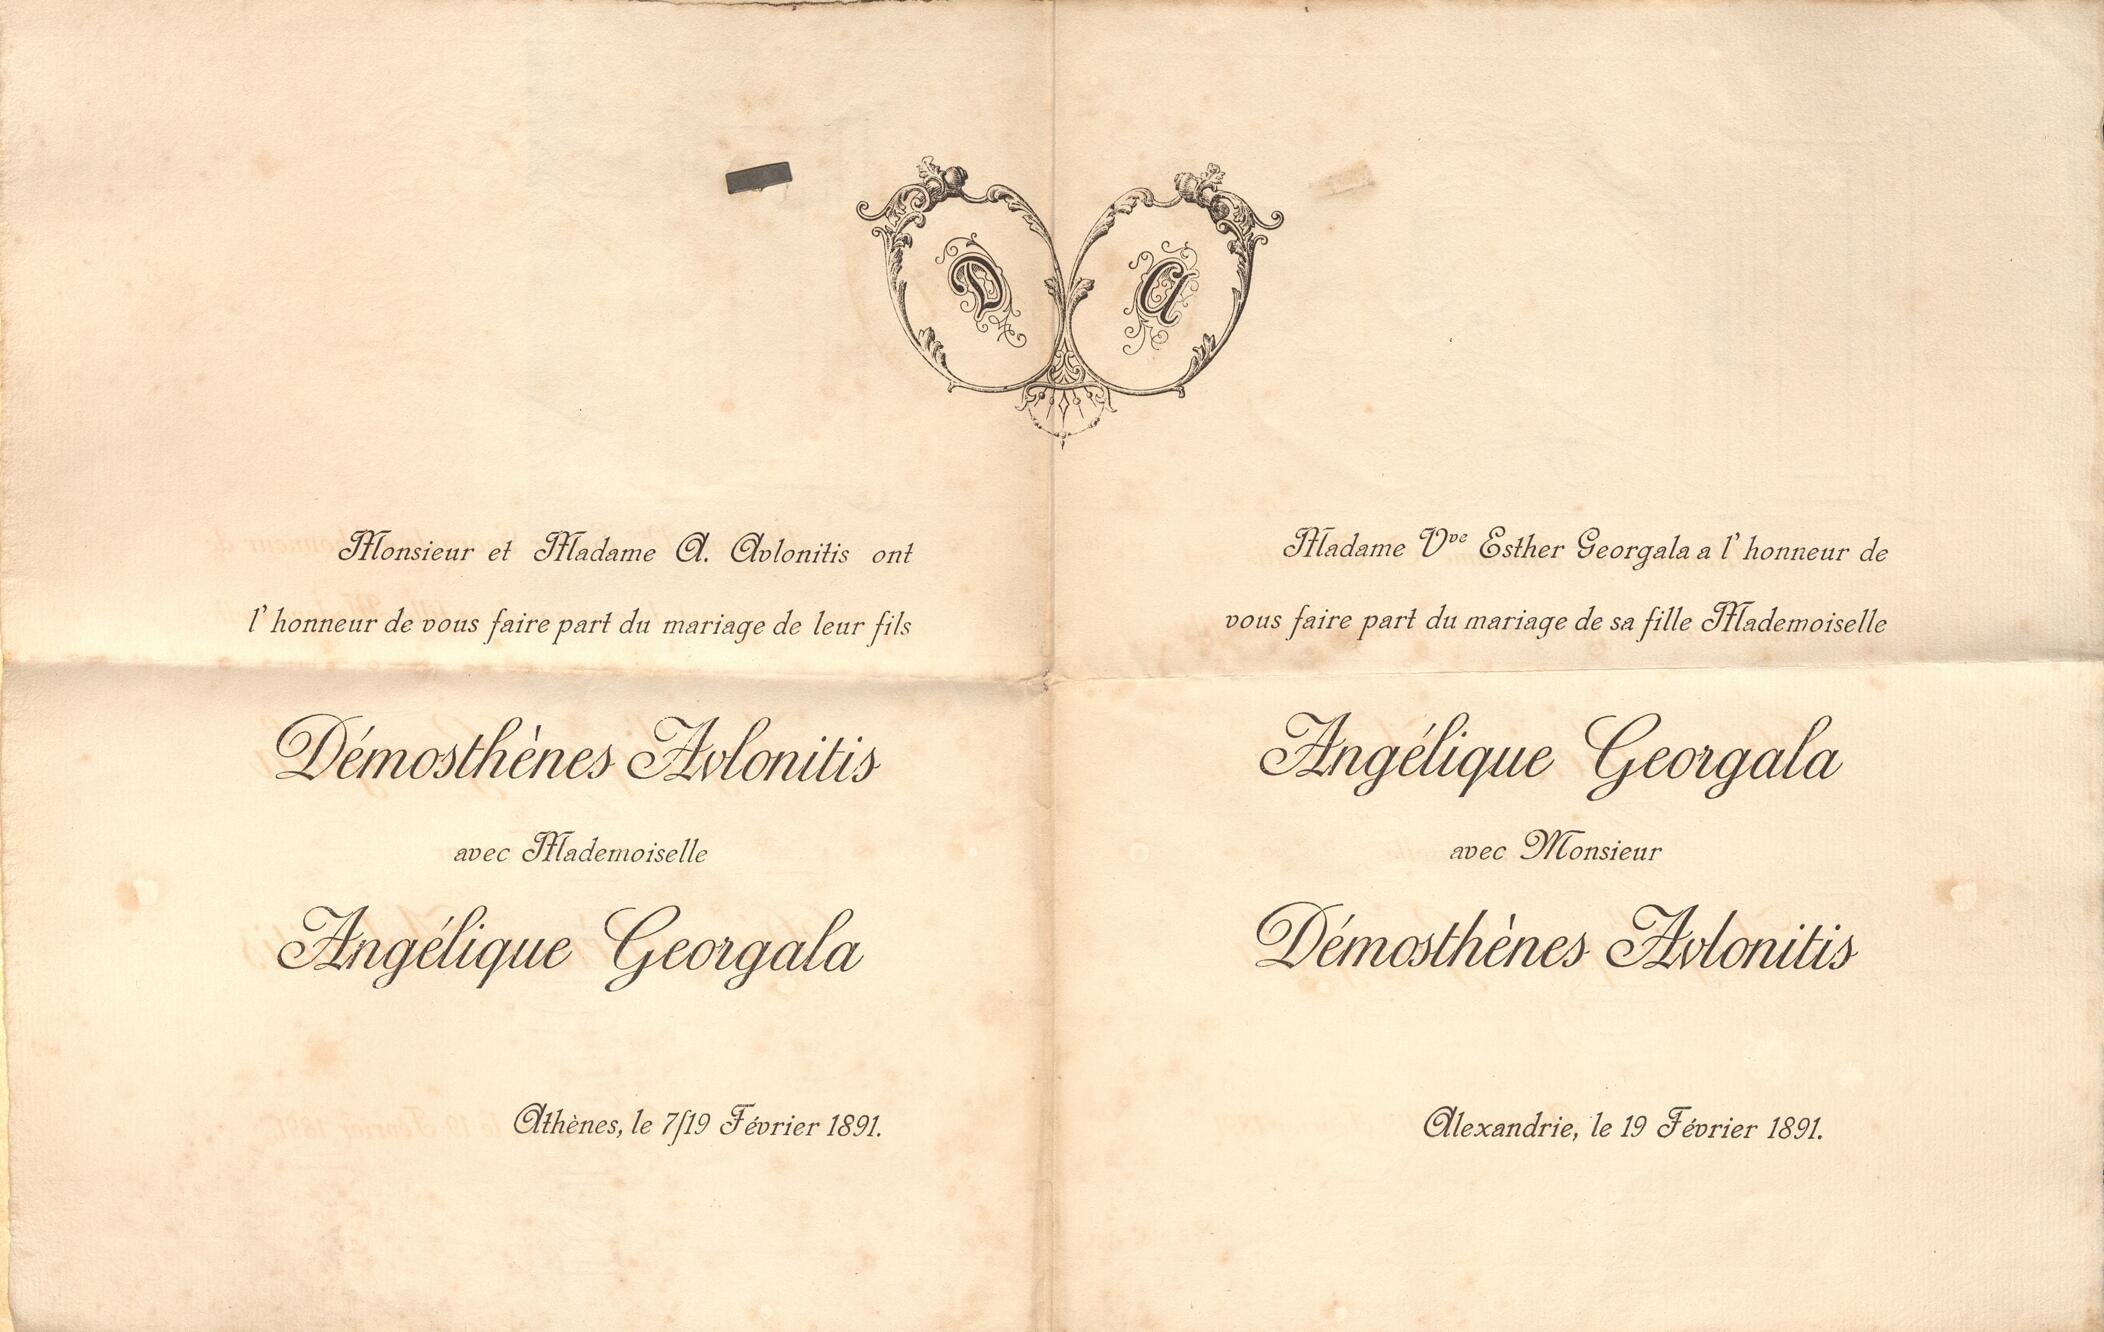 D
A
Monsieur et Madame A. Avlonitis ont
l'honneur de vous faire part du mariage de leur fils
Démosthènes Avlonitis
avec Mademoiselle
Angélique Georgala
Athènes, le 7/19 Février 1891.
Madame Vve Esther Georgala a l'honneur de
vous faire part du mariage de sa fille Mademoiselle
Angélique Georgala
avec Monsieur
Démosthènes Avlonitis
Alexandrie, le 19 Février 1891.